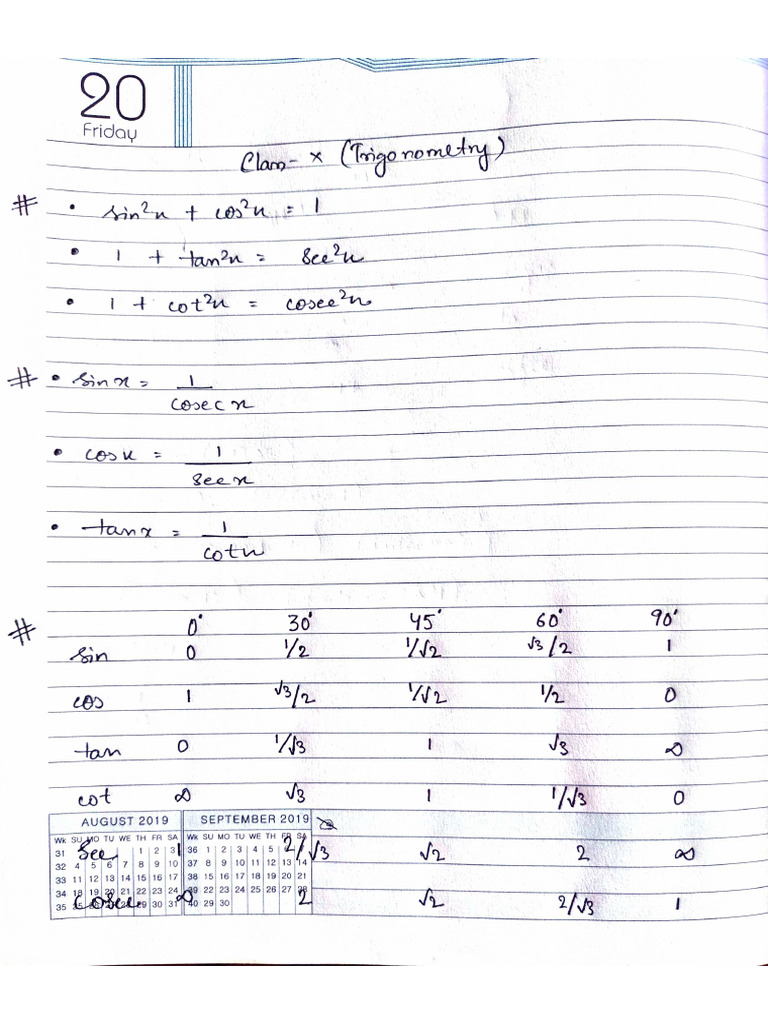 20
Friday
Class - X (Trigonometry)
# • sin²x + cos²x = 1
• 1 + tan²x = sec²x
• 1 + cot²x = cosec²x
# • sin x = 1/cosec x
• cos x = 1/sec x
• tan x = 1/cot x
# 0° 30° 45° 60° 90°
sin 0 1/2 1/√2 √3/2 1
cos 1 √3/2 1/√2 1/2 0
tan 0 1/√3 1 √3 ∞
cot ∞ √3 1 1/√3 0
AUGUST 2019 SEPTEMBER 2019
Wk SU MO TU WE TH FR SA Wk SU MO TU WE TH FR SA
sec 1 2/√3 √2 2 ∞
31 1 2 3 36 1 2 3 4 5 6 7
32 4 5 6 7 8 9 10 37 8 9 10 11 12 13 14
33 11 12 13 14 15 16 17 38 15 16 17 18 19 20 21
34 18 19 20 21 22 23 24 39 22 23 24 25 26 27 28
35 25 26 27 28 29 30 31 40 29 30
cosec ∞ 2 √2 2/√3 1